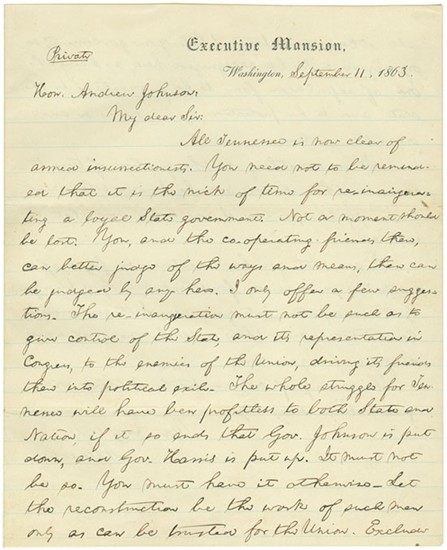 Executive Mansion,
Private
Washington, September 11, 1863.
Hon. Andrew Johnson:
My dear Sir:
All Tennessee is now clear of
armed insurrectionists. You need not to be remind-
ed that it is the nick of time for re-inaugera-
ting a loyal State government. Not a moment should
be lost. You, and the co-operating friends there,
can better judge of the ways and means, than can
be judged by any here. I only offer a few sugges-
tions. The re-inaugeration must not be such as to
give control of the State, and its representation in
Congress, to the enemies of the Union, driving its friends
there into political exile. The whole struggle for Ten-
nessee will have been profitless to both State and
Nation, if it so ends that Gov. Johnson is put
down, and Gov. Harris is put up. It must not
be so. You must have it otherwise. Let
the reconstruction be the work of such men
only as can be trusted for the Union. Exclude